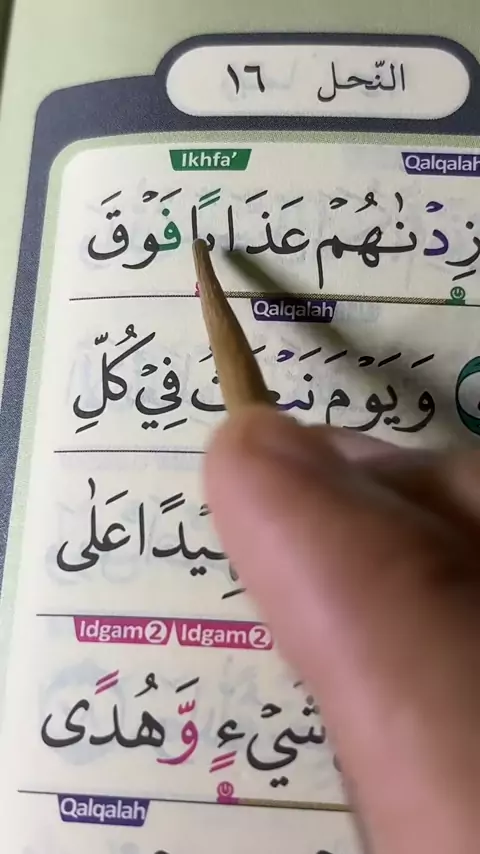 النّحل ١٦
Ikhfa' Qalqalah
زِدْنٰهُمْ عَذَابًا فَوْقَ
Qalqalah
وَيَوْمَ نَبْعَثُ فِيْ كُلِّ
عَلٰى
Idgam2 Idgam2
شَيْءٍ وَّهُدًى
Qalqalah